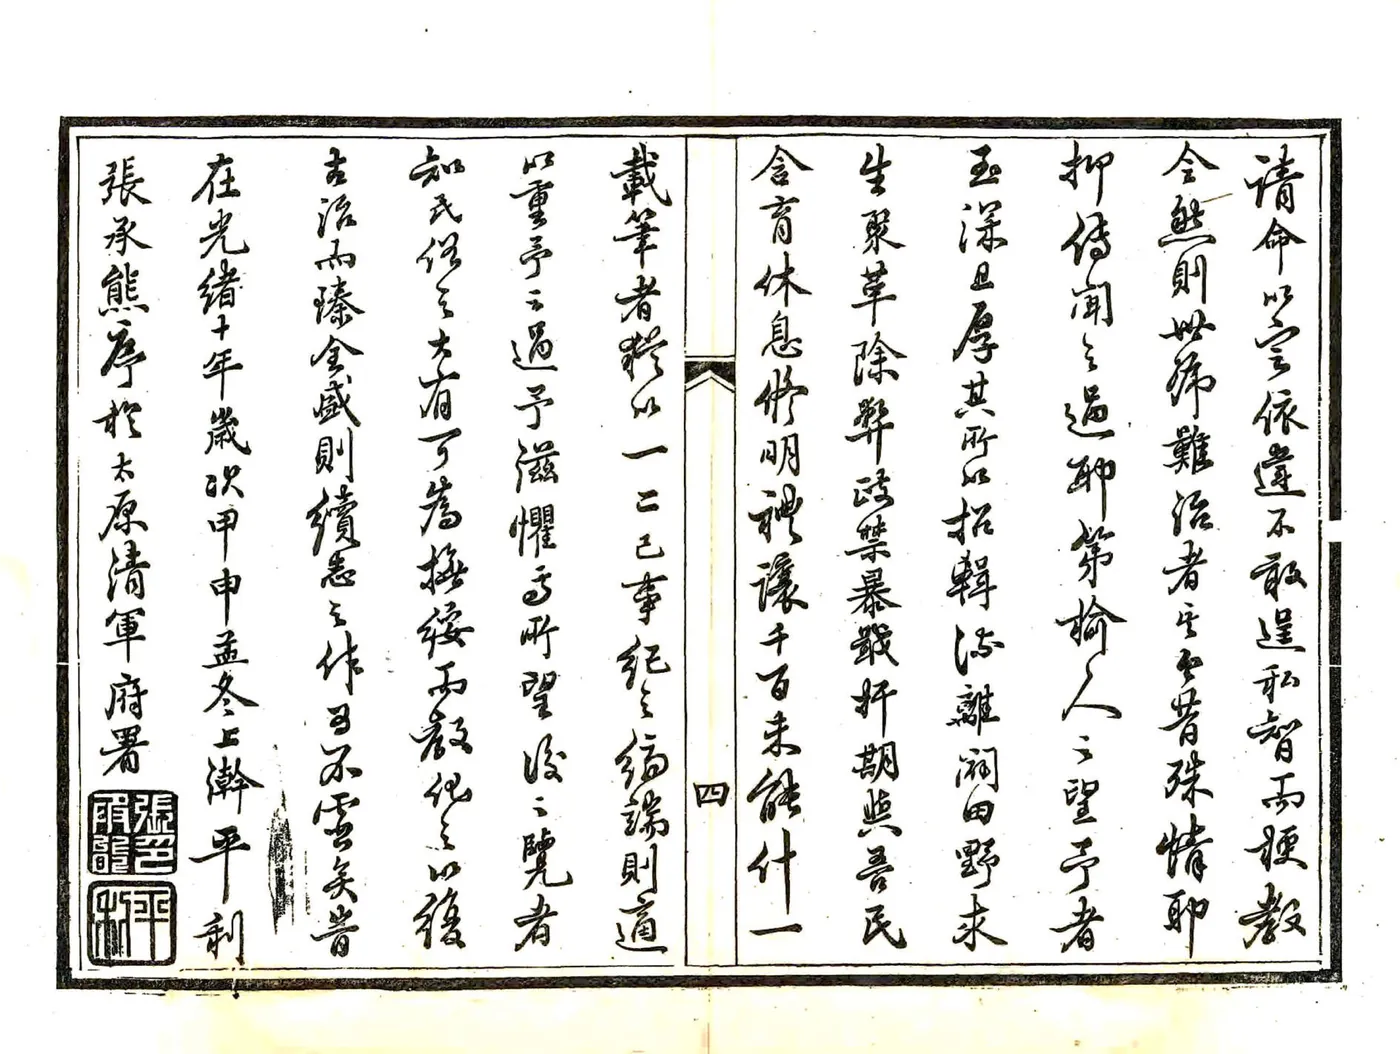 請命以寧依違不敢逞私智而梗教
令然則世稱難治者其今昔殊情耶
抑傳聞之過耶第榆人之望予者
至深且厚其所以招輯流離闢田野求
生聚革除弊政禁暴戢奸期與吾民
含育休息修明禮讓千百未能什一
載筆者猶以一二已事紀之編端則適
以重予之過予滋懼焉所望後之覽者
知民俗之大有可為撫綏而教化之以復
古治而臻全盛則續志之作為不虛矣皆
在光緒十年歲次甲申孟冬上澣平利
張承熊序於太原清軍府署
四
平利